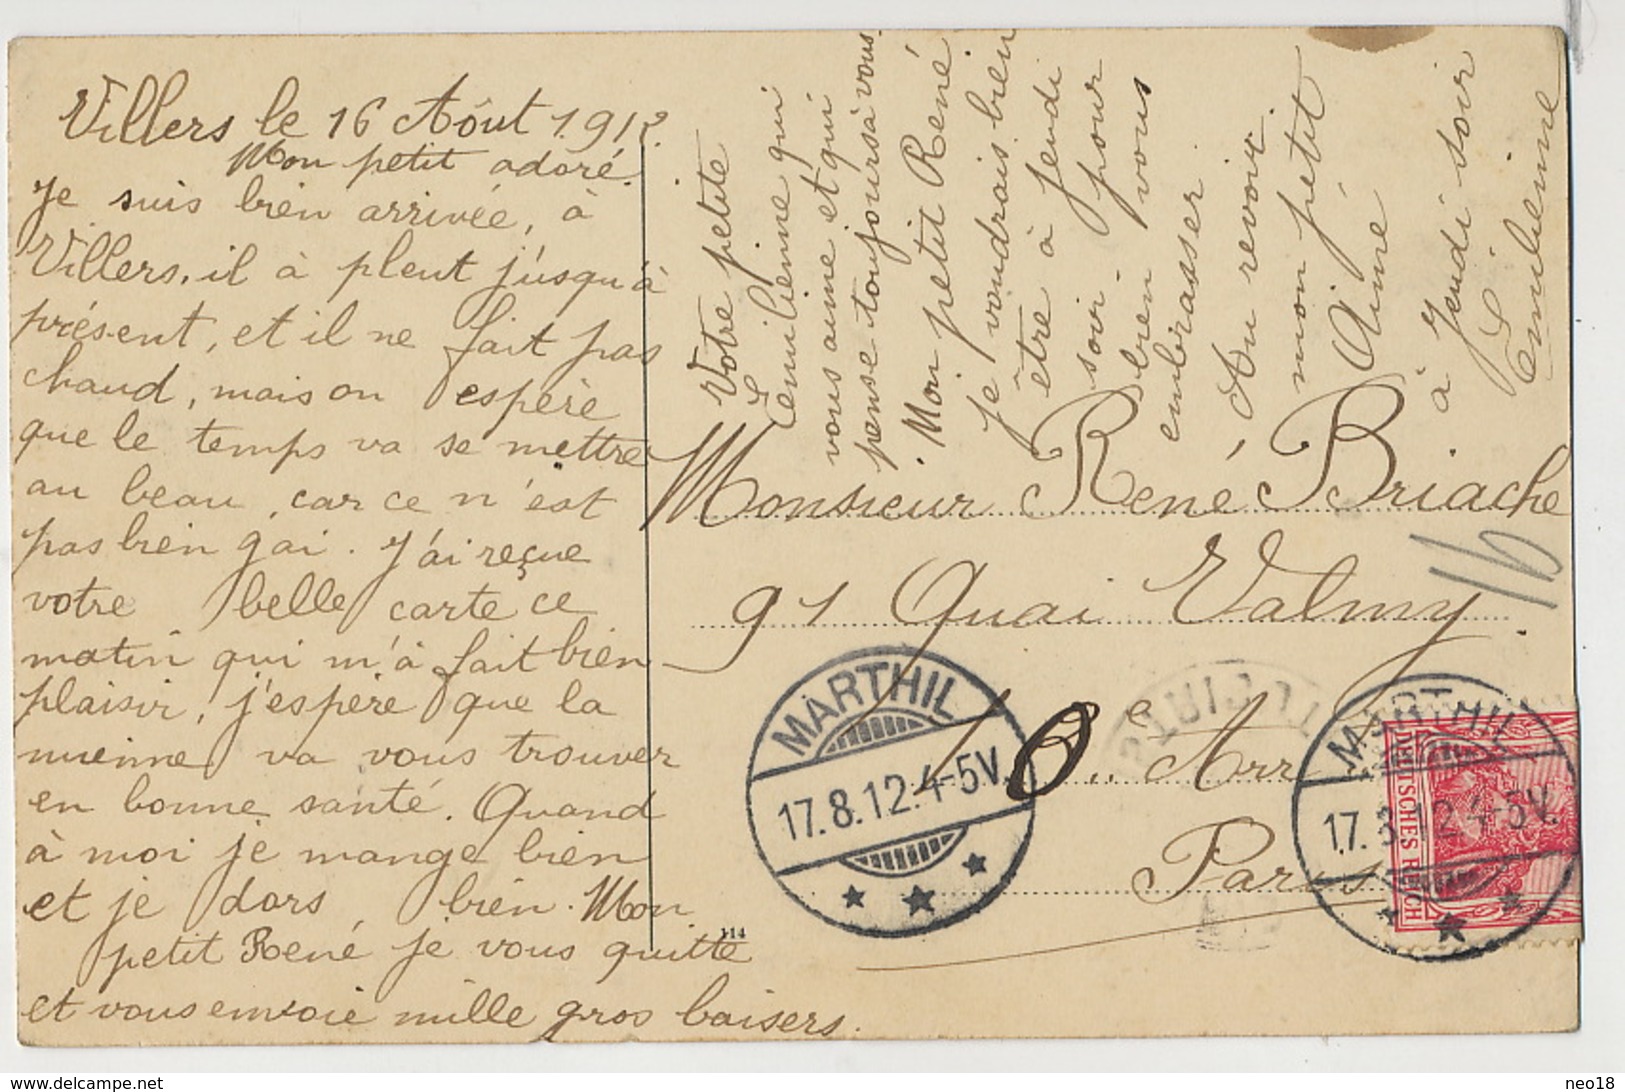 Villers le 16 Aôut 1912
Mon petit adoré.
Je suis bien arrivée, à
Villers, il à pleut j'usqu'à
présent, et il ne fait pas
chaud, mais on espère
que le temps va se mettre
au beau, car ce n'est
pas bien gai. J'ai reçue
votre belle carte ce
matin qui m'à fait bien
plaisir, j'espère que la
mienne va vous trouver
en bonne santé. Quand
à moi je mange bien
et je dors, bien. Mon
petit René je vous quitte
et vous envoie mille gros baisers.
Votre petite
Lemilienne qui
vous aime et qui
pense toujours à vous.
Mon petit René
je voudrais bien
être à jeudi
soir pour
bien vous
embrasser.
Au revoir.
mon petit
Aimé
à Jeudi soir
Emilienne
Monsieur René Briache
91 Quai Valmy.
10e Arr
Paris
114
MARTHIL
17.8.12.4-5V.
MARTHIL
17.8.12.4-5V.
DEUTSCHES REICH
Delcampe.net
neo18